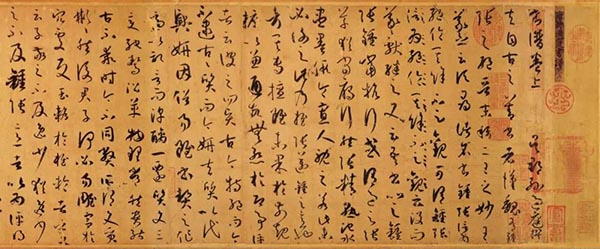 書譜卷上 吳郡孫過庭撰
夫自古之善書者漢魏有鍾
張之絕晉末稱二王之妙王
羲之云頃尋諸名書鍾張信
為絕倫其餘不足觀可謂鍾張云沒而
羲獻繼之又云吾書比之鍾
張鍾當抗行或謂過之張
草猶當鴈行然張精熟池水
盡墨假令寡人耽之若此未
必謝之此乃推張邁鍾之意也
考其專擅雖未果於前規
摭以兼通故無慚於即事評
者云彼之四賢古今特絕而今
不逮古古質而今妍夫質以代
興妍因俗易雖書契之作
適以記言而淳醨一遷質文三
變馳騖沿革物理常然貴能
古不乖時今不同弊所謂文質
彬彬然後君子何必易雕宮於
穴處反玉輅於椎輪者乎又
云子敬之不及逸少猶逸少
之不及鍾張意者以為評得